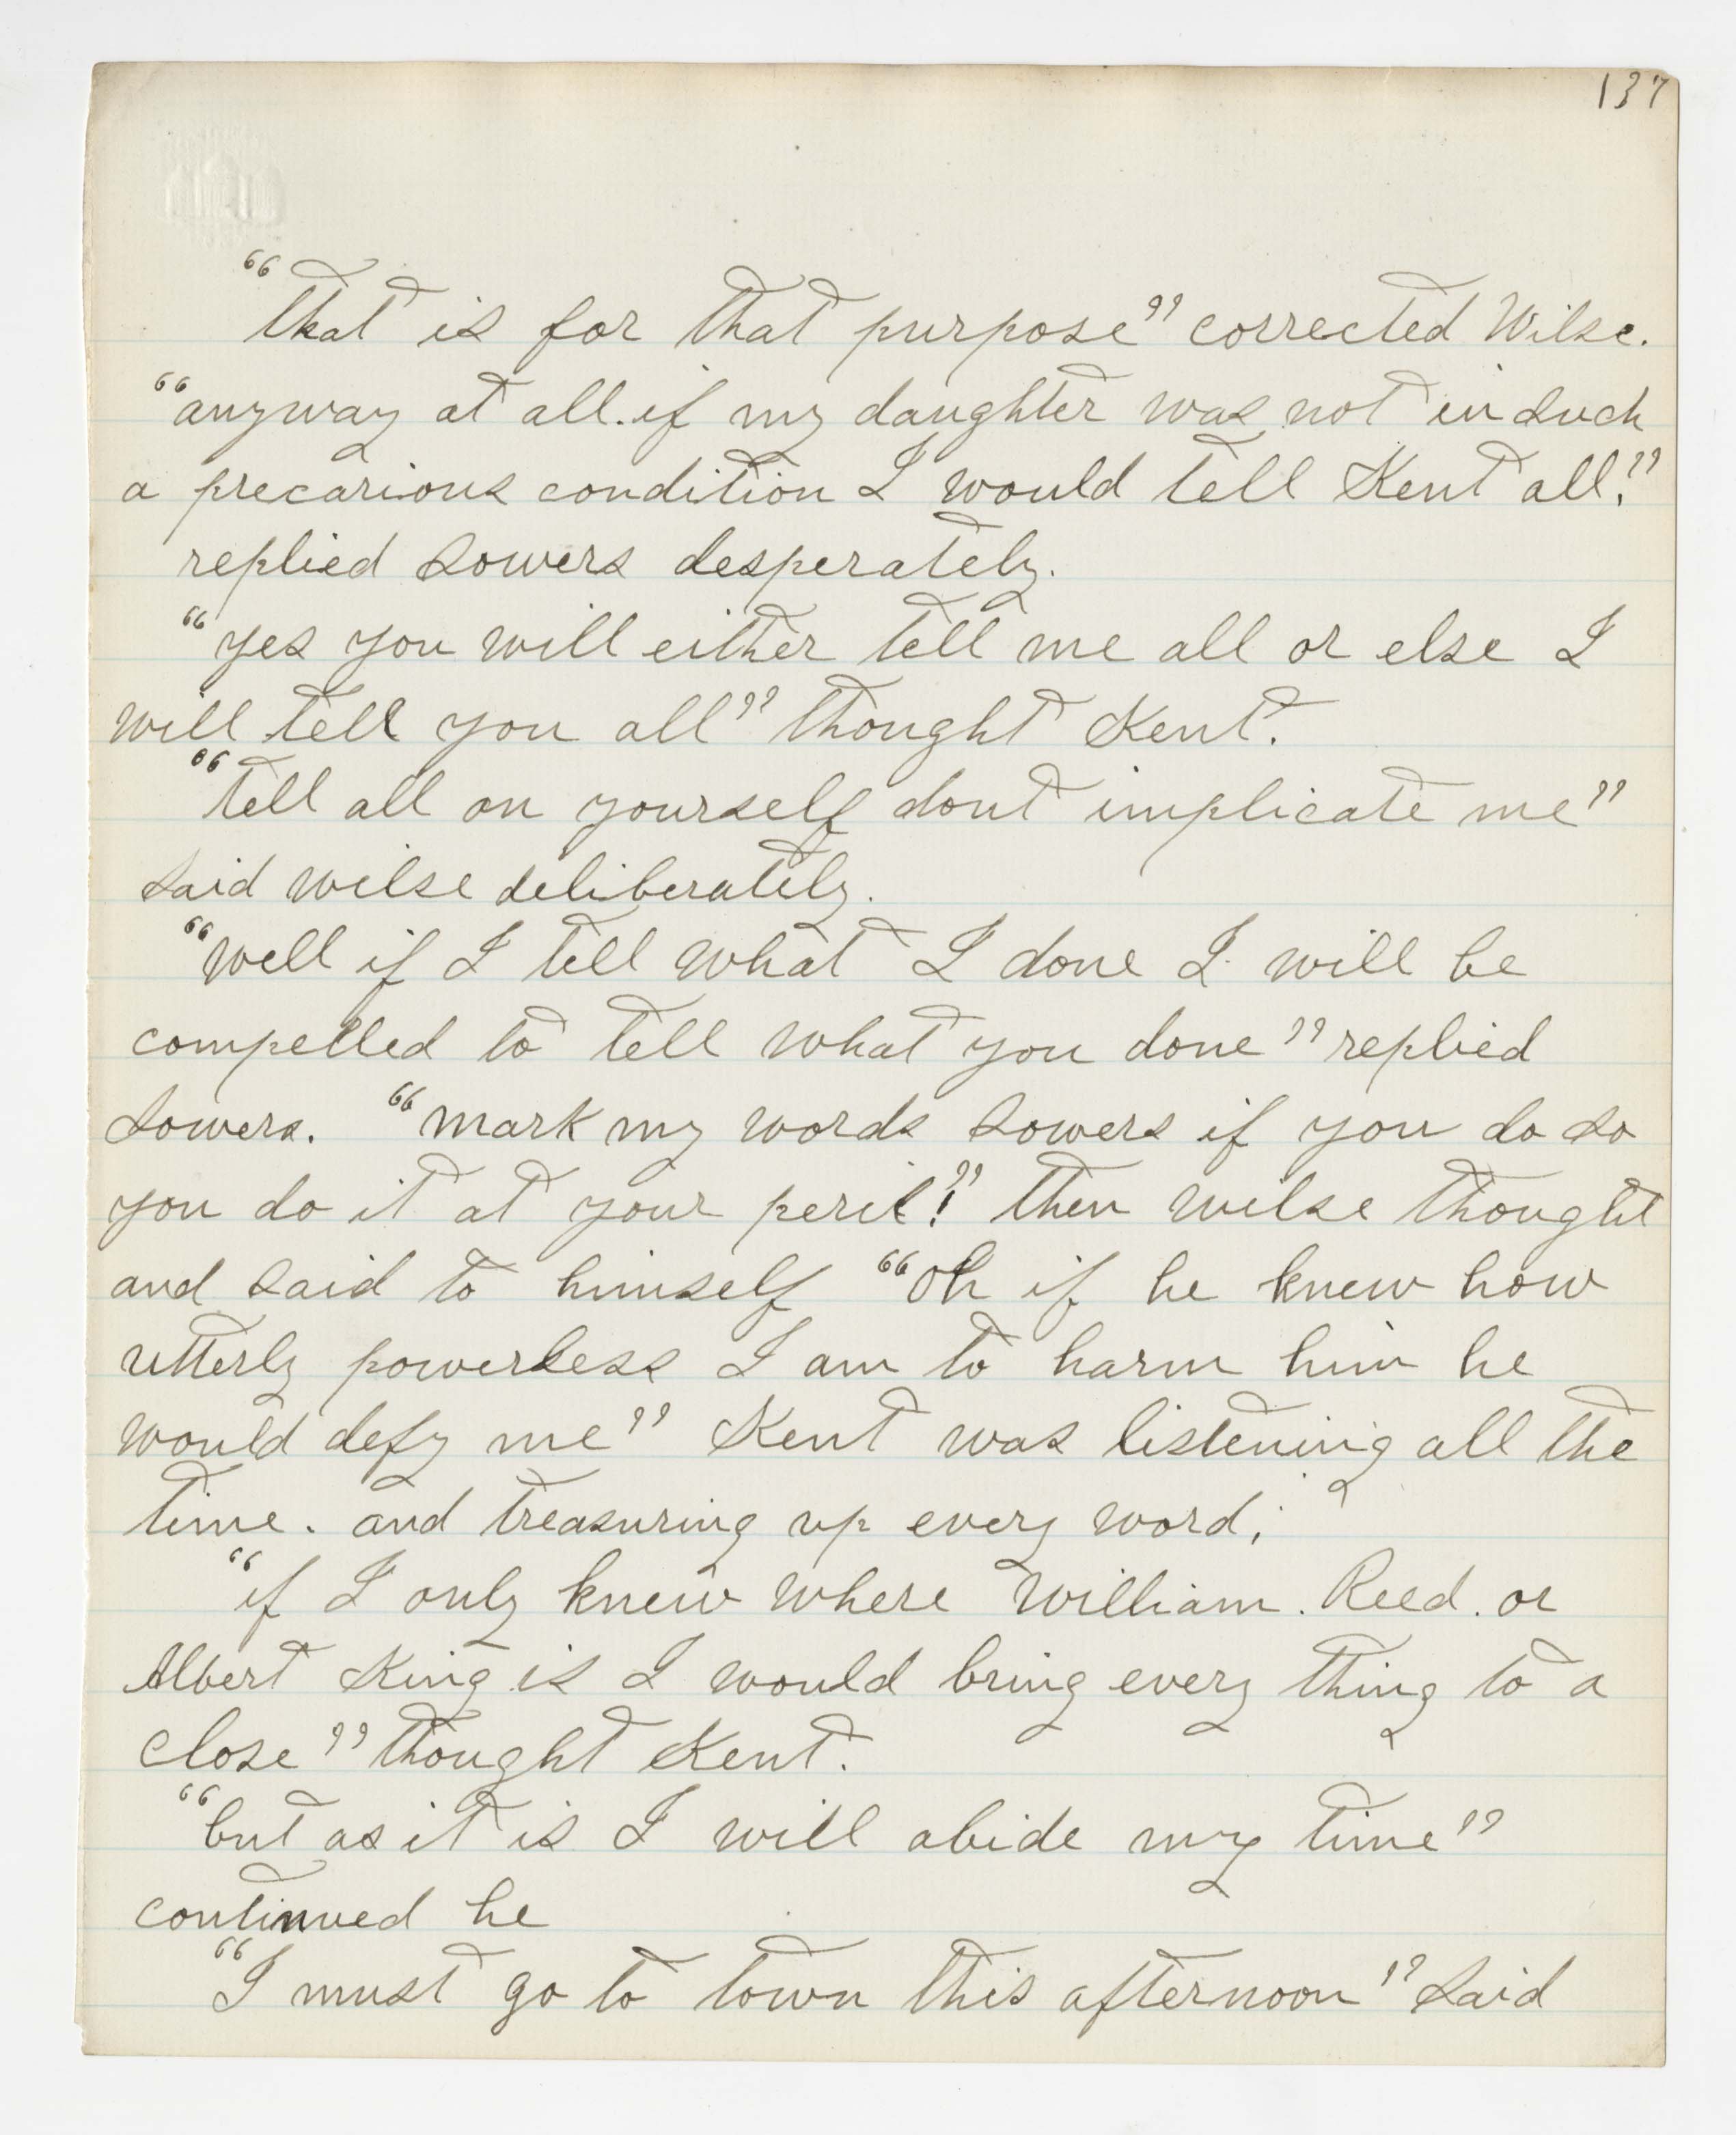 137
“that is for that purpose” corrected Wilse.
“anyway at all. if my daughter was not in such
a precarious condition I would tell Kent all.”
replied Sowers desperately.
“yes you will either tell me all or else I
will tell you all” thought Kent.
“tell all on yourself dont implicate me”
said wilse deliberately.
“well if I tell what I done I will be
compelled to tell what you done” replied
Sowers. “mark my words Sowers if you do so
you do it at your peril!” then wilse thought
and said to himself “oh if he knew how
utterly powerless I am to harm him he
would defy me” Kent was listening all the
time. and treasuring up every word;
“if I only knew where William. Reed. or
Albert King is I would bring every thing to a
close” thought Kent.
“but as it is I will abide my time”
continued he
“I must go to town this afternoon” said